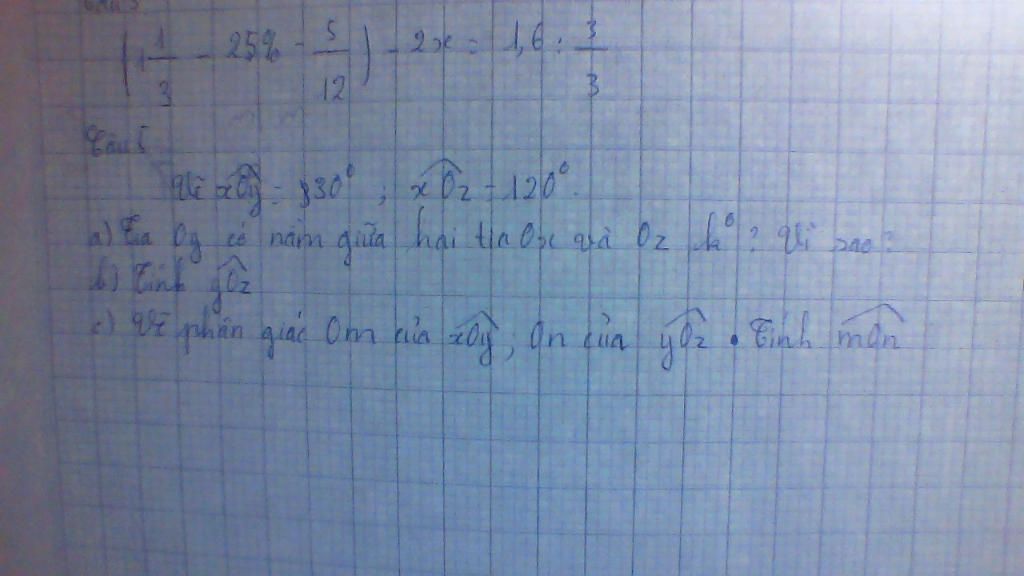 (1 1/3 - 25% - 5/12) - 2x = 1,6 : 3/3
Câu 5
Vẽ xOy = 30° ; xOz = 120°.
a) Tia Oy có nằm giữa hai tia Ox và Oz k° ? Vì sao ?
b) Tính yOz
c) Vẽ phân giác Om của xOy ; On của yOz . Tính mOn